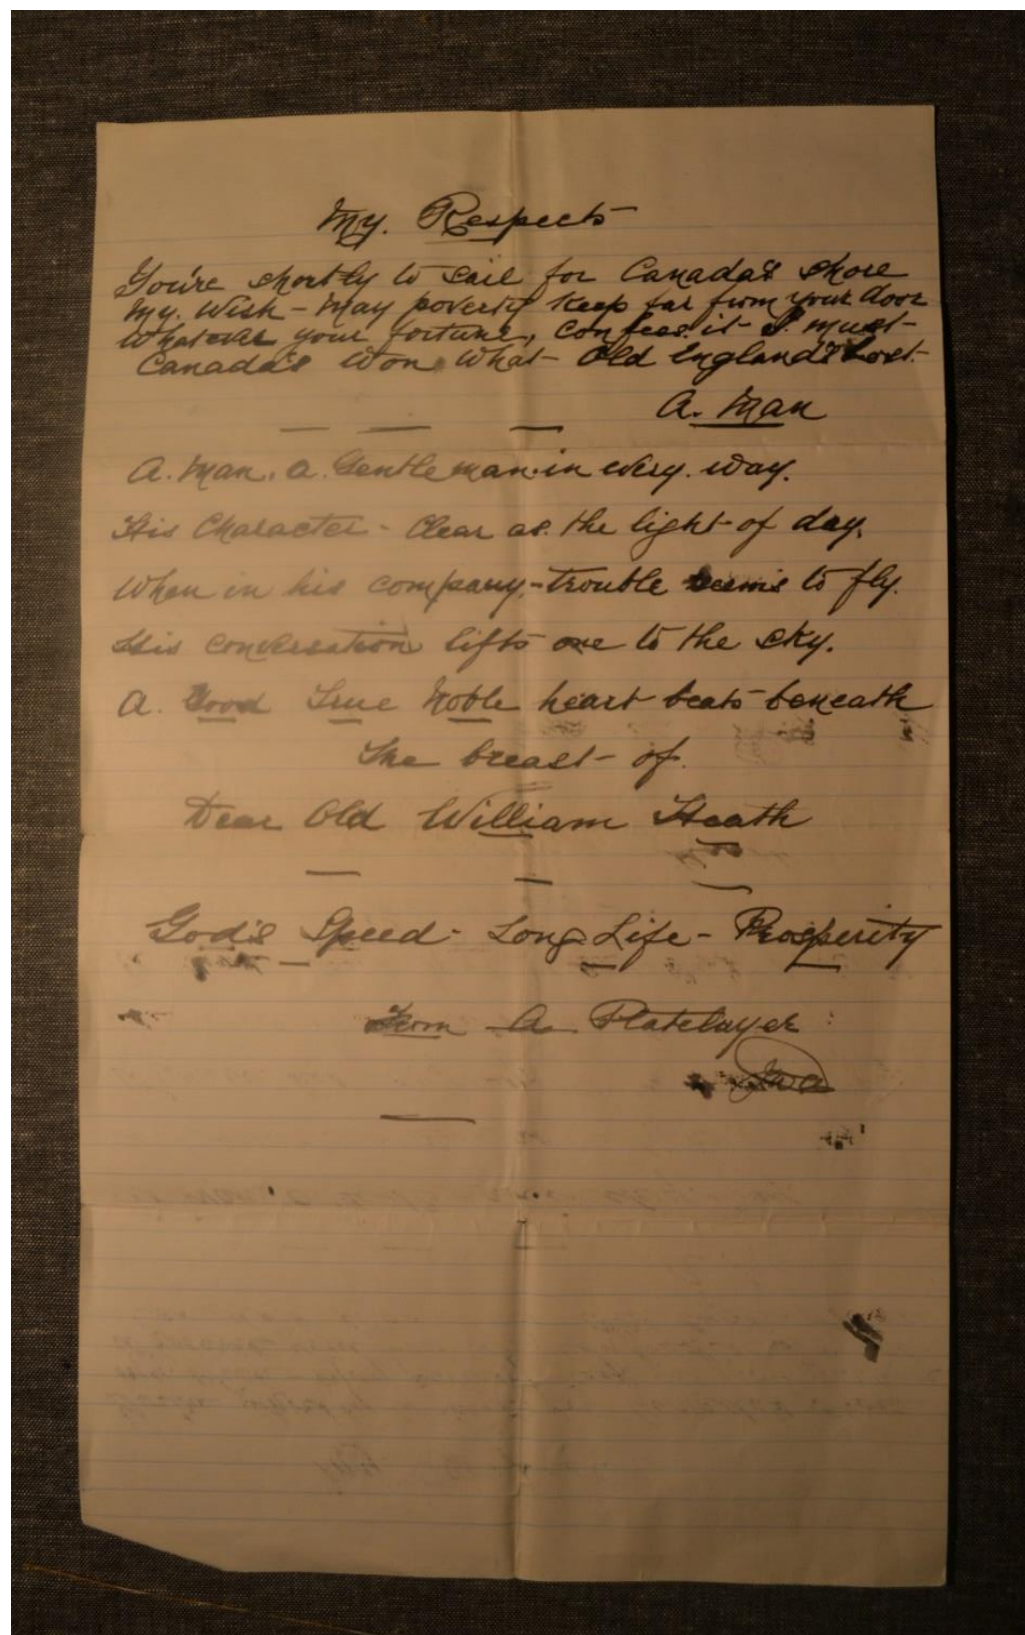 My. Respects
You're shortly to sail for Canada's shore
My. Wish - May poverty keep far from your door
Whatever your fortune, confess it - I must -
Canada's Won What - Old England's Lost -
A. Man
A. Man. a. Gentleman. in every. way.
His Character - Clear as. the light of day.
When in his company, - trouble seems to fly.
His conversation lifts one to the sky.
A. Good True Noble heart beats beneath
The breast - of.
Dear Old William Heath
God's Speed - Long Life - Prosperity
From A Platelayer